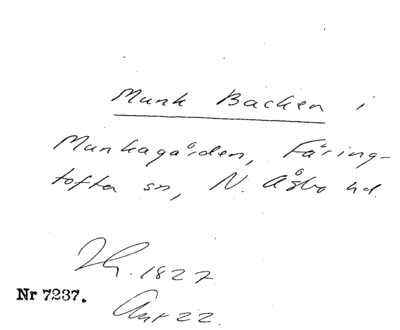 Munk Backen i
Munkagården, Färing-
tofta sn, N. Åsbo hd.
1827
Nr 7237.
Akt 22.